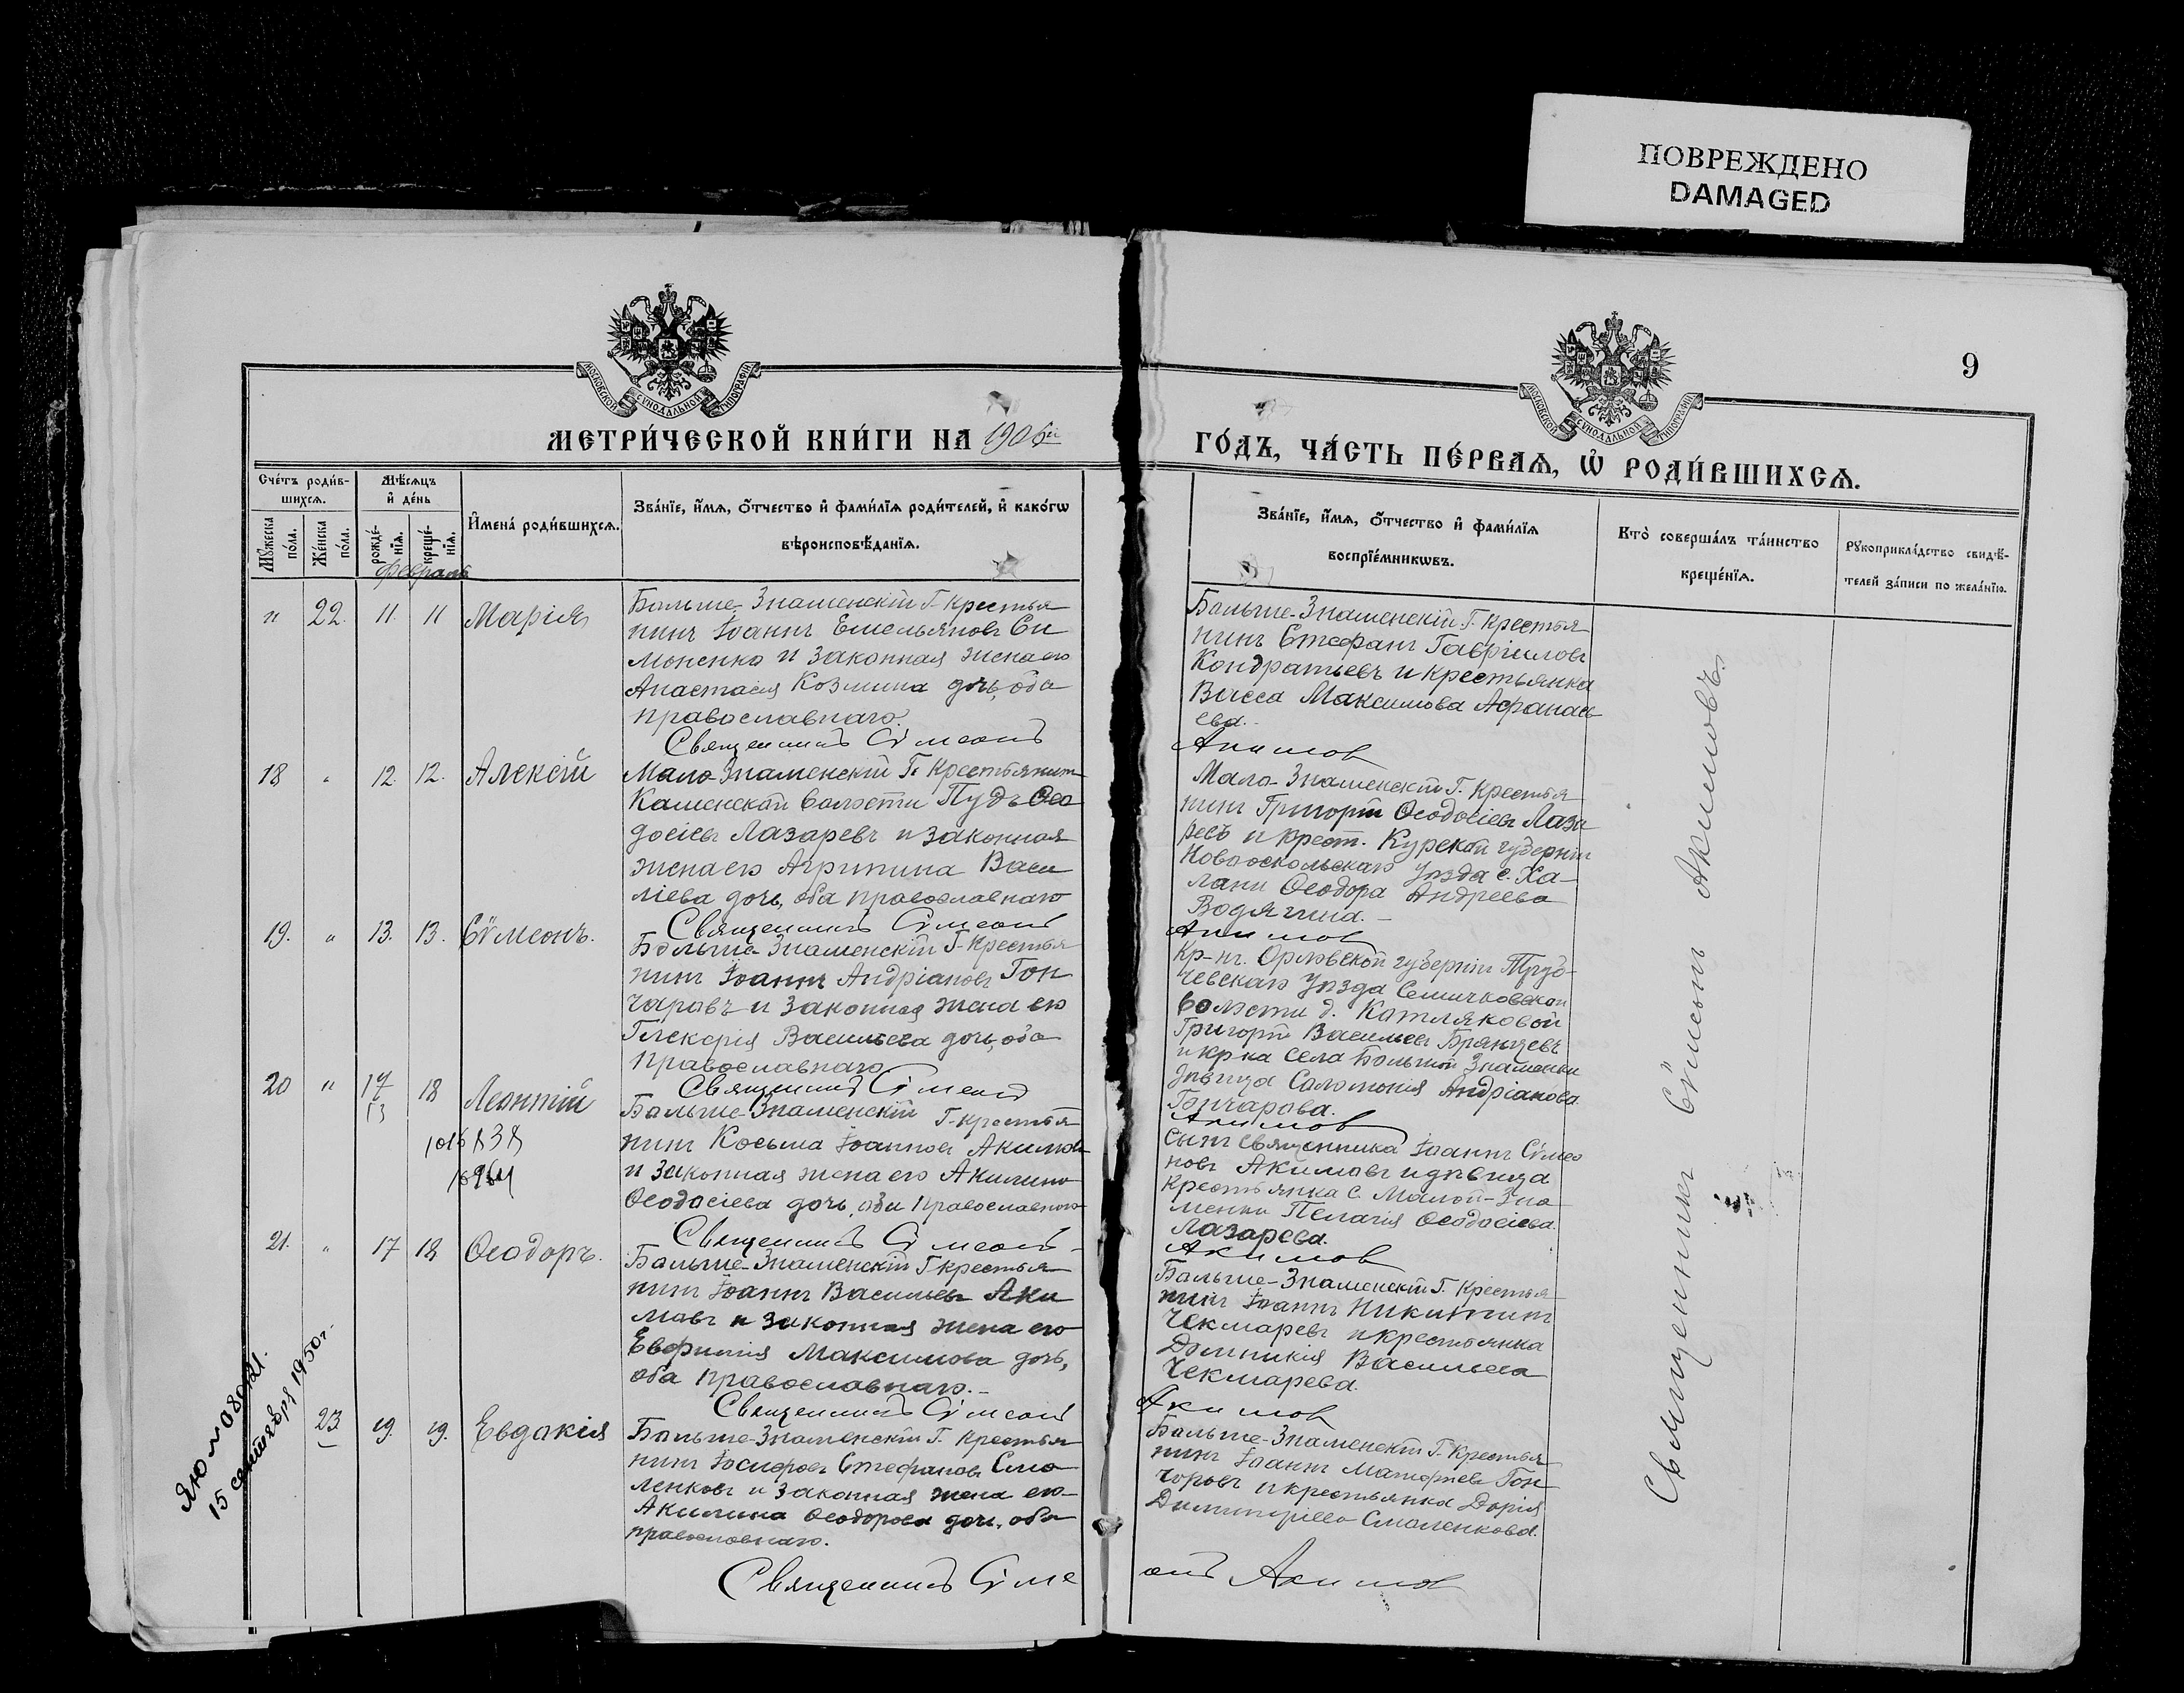 ПОВРЕЖДЕНО
DAMAGED
9
МОСКОВСКОЙ СѴНОДАЛЬНОЙ ТИПОГРАФІИ
МОСКОВСКОЙ СѴНОДАЛЬНОЙ ТИПОГРАФІИ
МЕТРИ́ЧЕСКОЙ КНИ́ГИ НА 1906й
ГО́ДЪ, ЧА́СТЬ ПЕ́РВАѦ, Ѡ҆ РОДИ́ВШИХСѦ.
Сче́тъ роди́в-
шихсѧ.
Мꙋ́жеска по́ла.
Же́нска по́ла.
Мѣ́сѧцъ
и҆ де́нь
рожде́-
нїѧ.
креще́-
нїѧ.
И҆мена̀ роди́вшихсѧ.
Зва́нїе, и҆́мѧ, ѻ҆́тчество и҆ фами́лїѧ роди́телей, и҆ како́гѡ
вѣроисповѣ́данїѧ.
Зва́нїе, и҆́мѧ, ѻ҆́тчество и҆ фами́лїѧ
воспрїе́мникѡвъ.
Кто̀ соверша́лъ та́инство
креще́нїѧ.
Рꙋкоприкла́дство свидѣ́-
телей за́писи по жела́нїю.
Февраль
" 22. 11. 11 Марія
Больше-Знаменскій Г. крестья
нинъ Іоаннъ Емельяновъ Си
моненко и законная жена его
Анастасія Козмина дочь, оба
православнаго.
Больше-Знаменскій Г. крестья
нинъ Стефанъ Гавріиловъ
Кондратьевъ и крестьянка
Васса Максимова Афанась
ева.
Священникъ Сѵмеонъ
Акимов
18 " 12. 12. Алексій
Мало-Знаменскій Г. Крестьянинъ
Каменской волости Пудъ Ѳео
досіевъ Лазаревъ и законная
жена его Агрипина Васи
ліева дочь, оба православнаго
Мало-Знаменскій Г. Крестья
нинъ Григорій Ѳеодосіевъ Лаза
ревъ и крест. Курской губерніи
Новооскольскаго уѣзда с. Ха-
лани Ѳеодора Андреева
Водягина.
Священникъ Сѵмеонъ
Акимов
19. " 13. 13. Сѵмеонъ.
Больше-Знаменскій Г. Крестья
нинъ Іоаннъ Андріановъ Гон
чаровъ и законная жена его
Гликерія Васильева дочь, оба
православнаго
Кр-нъ. Орловской губерніи Труб-
чевскаго уѣзда Семичковской
волости д. Катляковой
Григорій Васильевъ Брянцевъ
и кр-ка села Большой Знаменки
дѣвица Саломонія Андріанова
Гончарова.
Священникъ Сѵмеонъ
Акимов
20 " 17 18 Леонтій
13
Больше-Знаменскій Г. крестья
нинъ Косьма Іоанновъ Акимовъ
и законная жена его Акилина
Ѳеодосіева дочь, оба православнаго
сынъ священника Іоаннъ Сѵмео
новъ Акимовъ и дѣвица
крестьянка с. Малой-Зна
менки Пелагія Ѳеодосіева
Лазарева.
Священникъ Сѵмеонъ
Акимов
21. " 17 18 Ѳеодоръ.
Больше-Знаменскій Г. крестья
нинъ Іоаннъ Васильевъ Аки
мовъ и законная жена его
Евфимія Максимова дочь,
оба православнаго.
Больше-Знаменскій Г. Крестья
нинъ Іоаннъ Никитинъ
Чекмаревъ и крестьянка
Домникія Васильева
Чекмарева.
Священникъ Сѵмеонъ
Акимов
23 19. 19. Евдокія
Больше-Знаменскій Г. Крестья
нинъ Іосифовъ Стефановъ Смо
ленковъ и законная жена его
Акилина Ѳеодорова дочь, оба
православнаго.
Больше-Знаменскій Г. Крестья
нинъ Іоаннъ Матфіевъ Гон
чаровъ и крестьянка Дарія
Димитріева Смаленкова.
Священникъ Сѵме
онъ Акимов
Священникъ Сѵмеонъ Акимовъ.
15 сентября 1950 г.